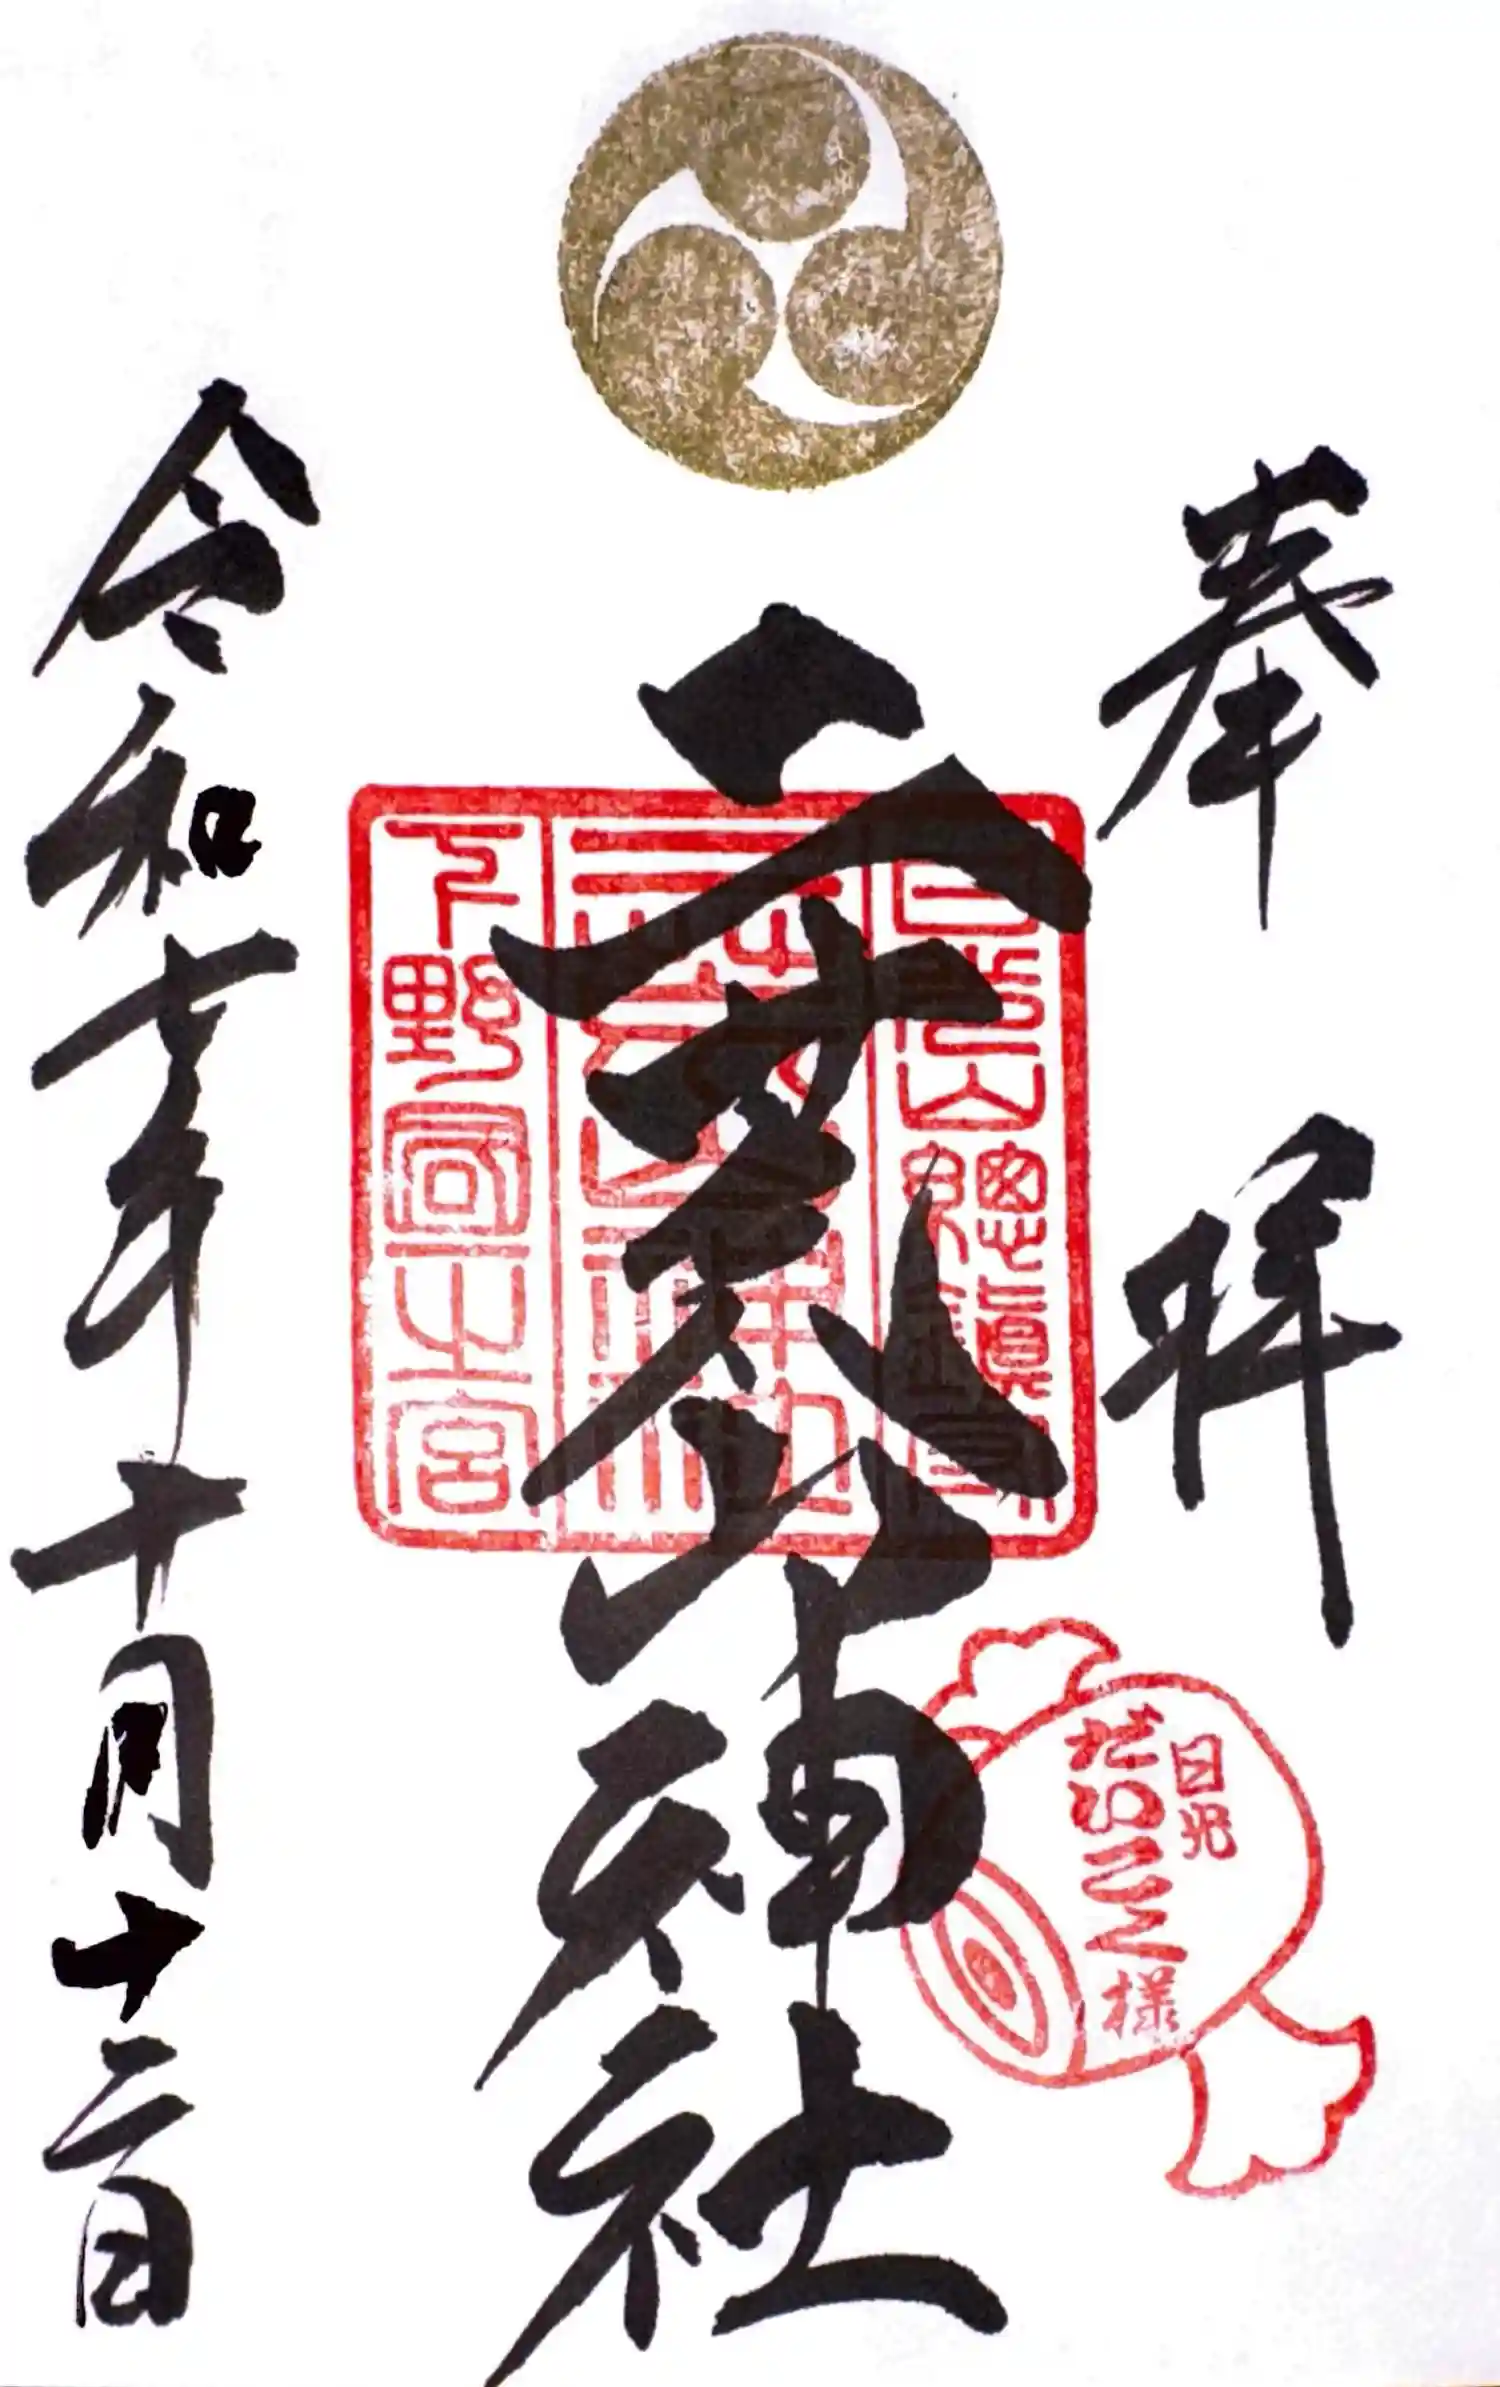 奉拝
日光山總鎮守
二荒山神社
下野國一之宮
二荒山神社
日光
だいこく様
令和七年十月十二日